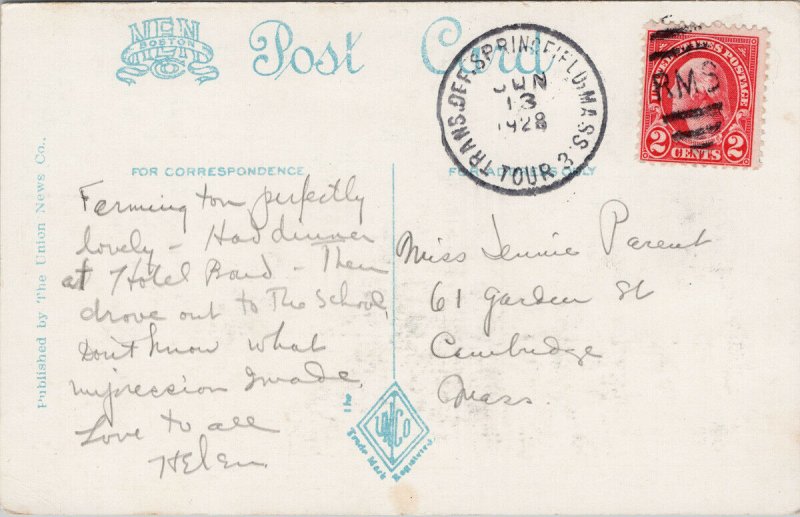 NEN
BOSTON
Post Card
TRANS. DEP. SPRINGFIELD, MASS.
JUN
13
1928
TOUR 3
RMS
UNITED STATES POSTAGE
2 CENTS 2
Published by The Union News Co.,
FOR CORRESPONDENCE
FOR ADDRESS ONLY
Farmington perfectly
lovely - Had dinner
at Hotel - Then
drove out to The School,
Don't know what
impression I made.
Love to all
Helen
Miss Jennie Parent
61 Garden St
Cambridge
Mass.
The
UNCO
Trade Mark
Registered